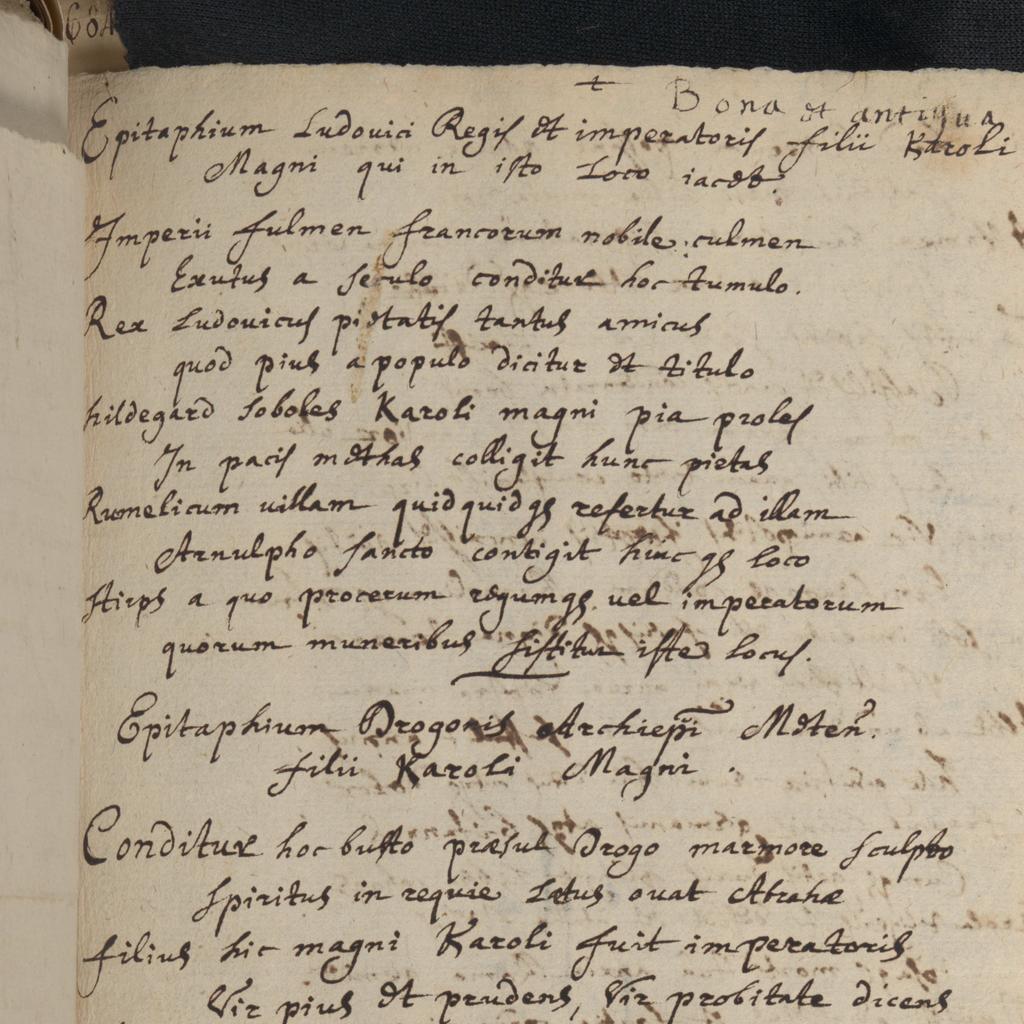 684
+ Bona et antiqua
Epitaphium Ludovici Regis et imperatoris filii Karoli
Magni qui in isto Loco iacet.
Imperii fulmen francorum nobile culmen
Exutus a seculo conditur hoc tumulo.
Rex Ludovicus pietatis tantus amicus
quod pius a populo dicitur et titulo
hildegard soboles Karoli magni pia proles
In pacis methas colligit hunc pietas
Rumelicum uillam quidquidqȝ refertur ad illam
Arnulpho sancto contigit huic qȝ loco
stirps a quo procerum regumqȝ uel imperatorum
quorum muneribus sistitur iste locus.
Epitaphium Drogonis Archiepi Meten.
filii Karoli Magni.
Conditur hoc busto præsul Drogo marmore sculpto
spiritus in requie Lætus ouat Abrahæ
filius hic magni Karoli fuit imperatoris
Vir pius et prudens, Vir probitate dicens